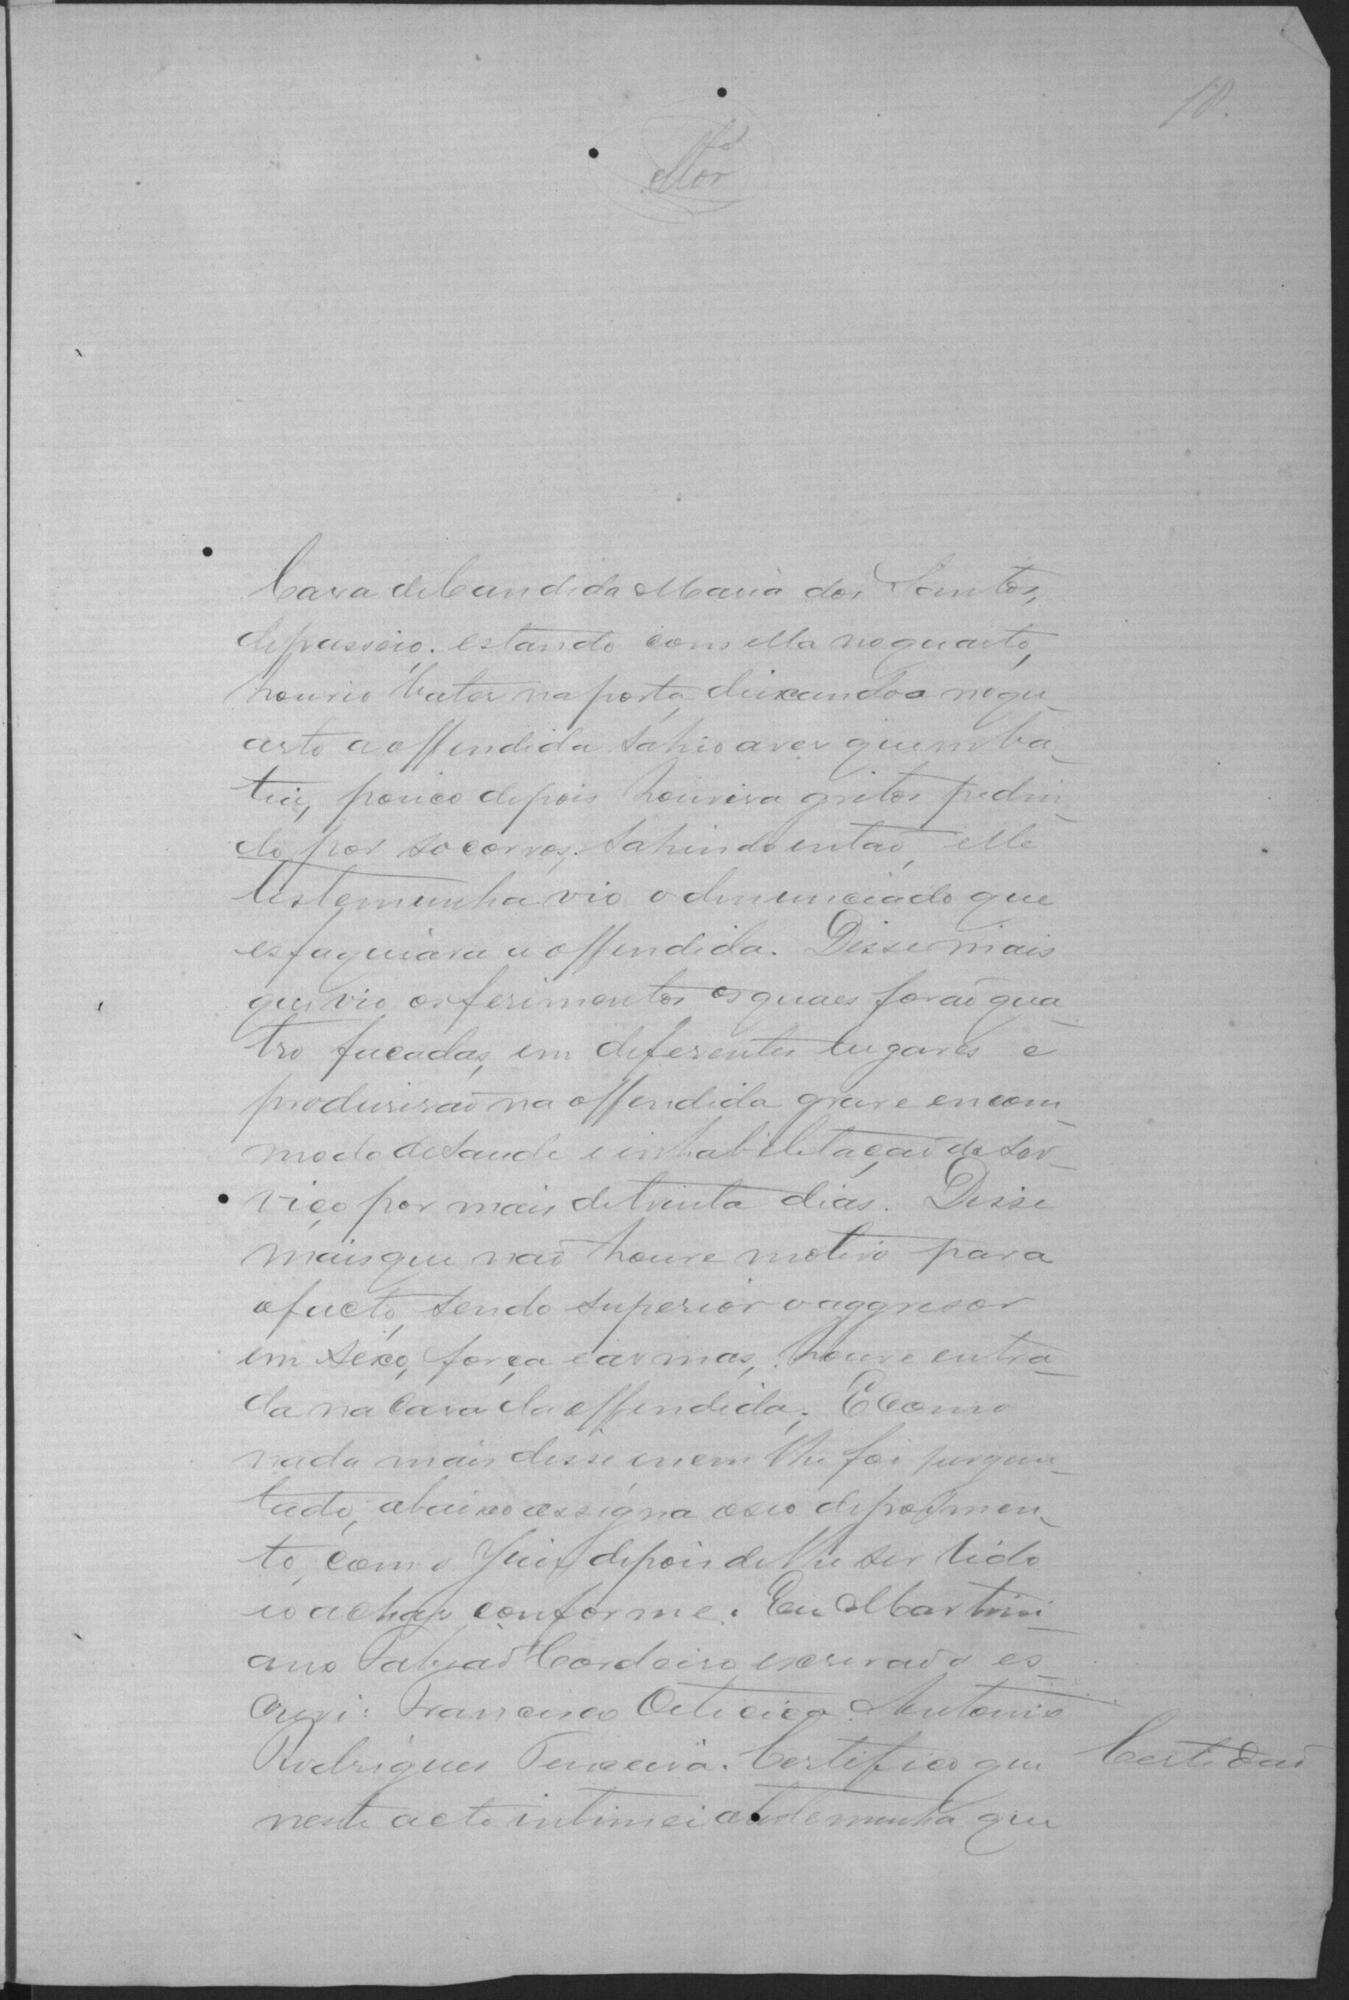 18.
Caza de Candida Maria dos Santos,
depasseio. estando com ella no quarto,
houvio bater na porta, deixando a noqu_
arto a offendida sahio a ver quem ba_
tia, pouco depois houvira gritos pedin_
do por socorros. Sahindo então, elle
testemunha vio o denunciado que
esfaquiára a offendida. Disse mais
que vio os ferimentos os quaes forão qua_
tro facadas, em deferentes lugares e
produsirão na offendida grave encom_
modo de saude e inhabilitação de ser_
viço por mais de trinta dias. Disse
mais que não houve motivo para
o facto, sendo superior o aggresor
em sexo, força e armas, houve entra_
da na caza da offendida. E como
nada mais disse e nem lhe foi pergun_
tado, abaixo assigna o seo depoimen_
to, com o Juiz depois de lhe ser lido
e o achar conforme. Eu Martini_
ano Cordeiro escrivão o es_
crevi: Francisco Oiticica. Antonio
Rodrigues Teixeira. Certifico que
neste acto intimei a testemunha que
Certidão